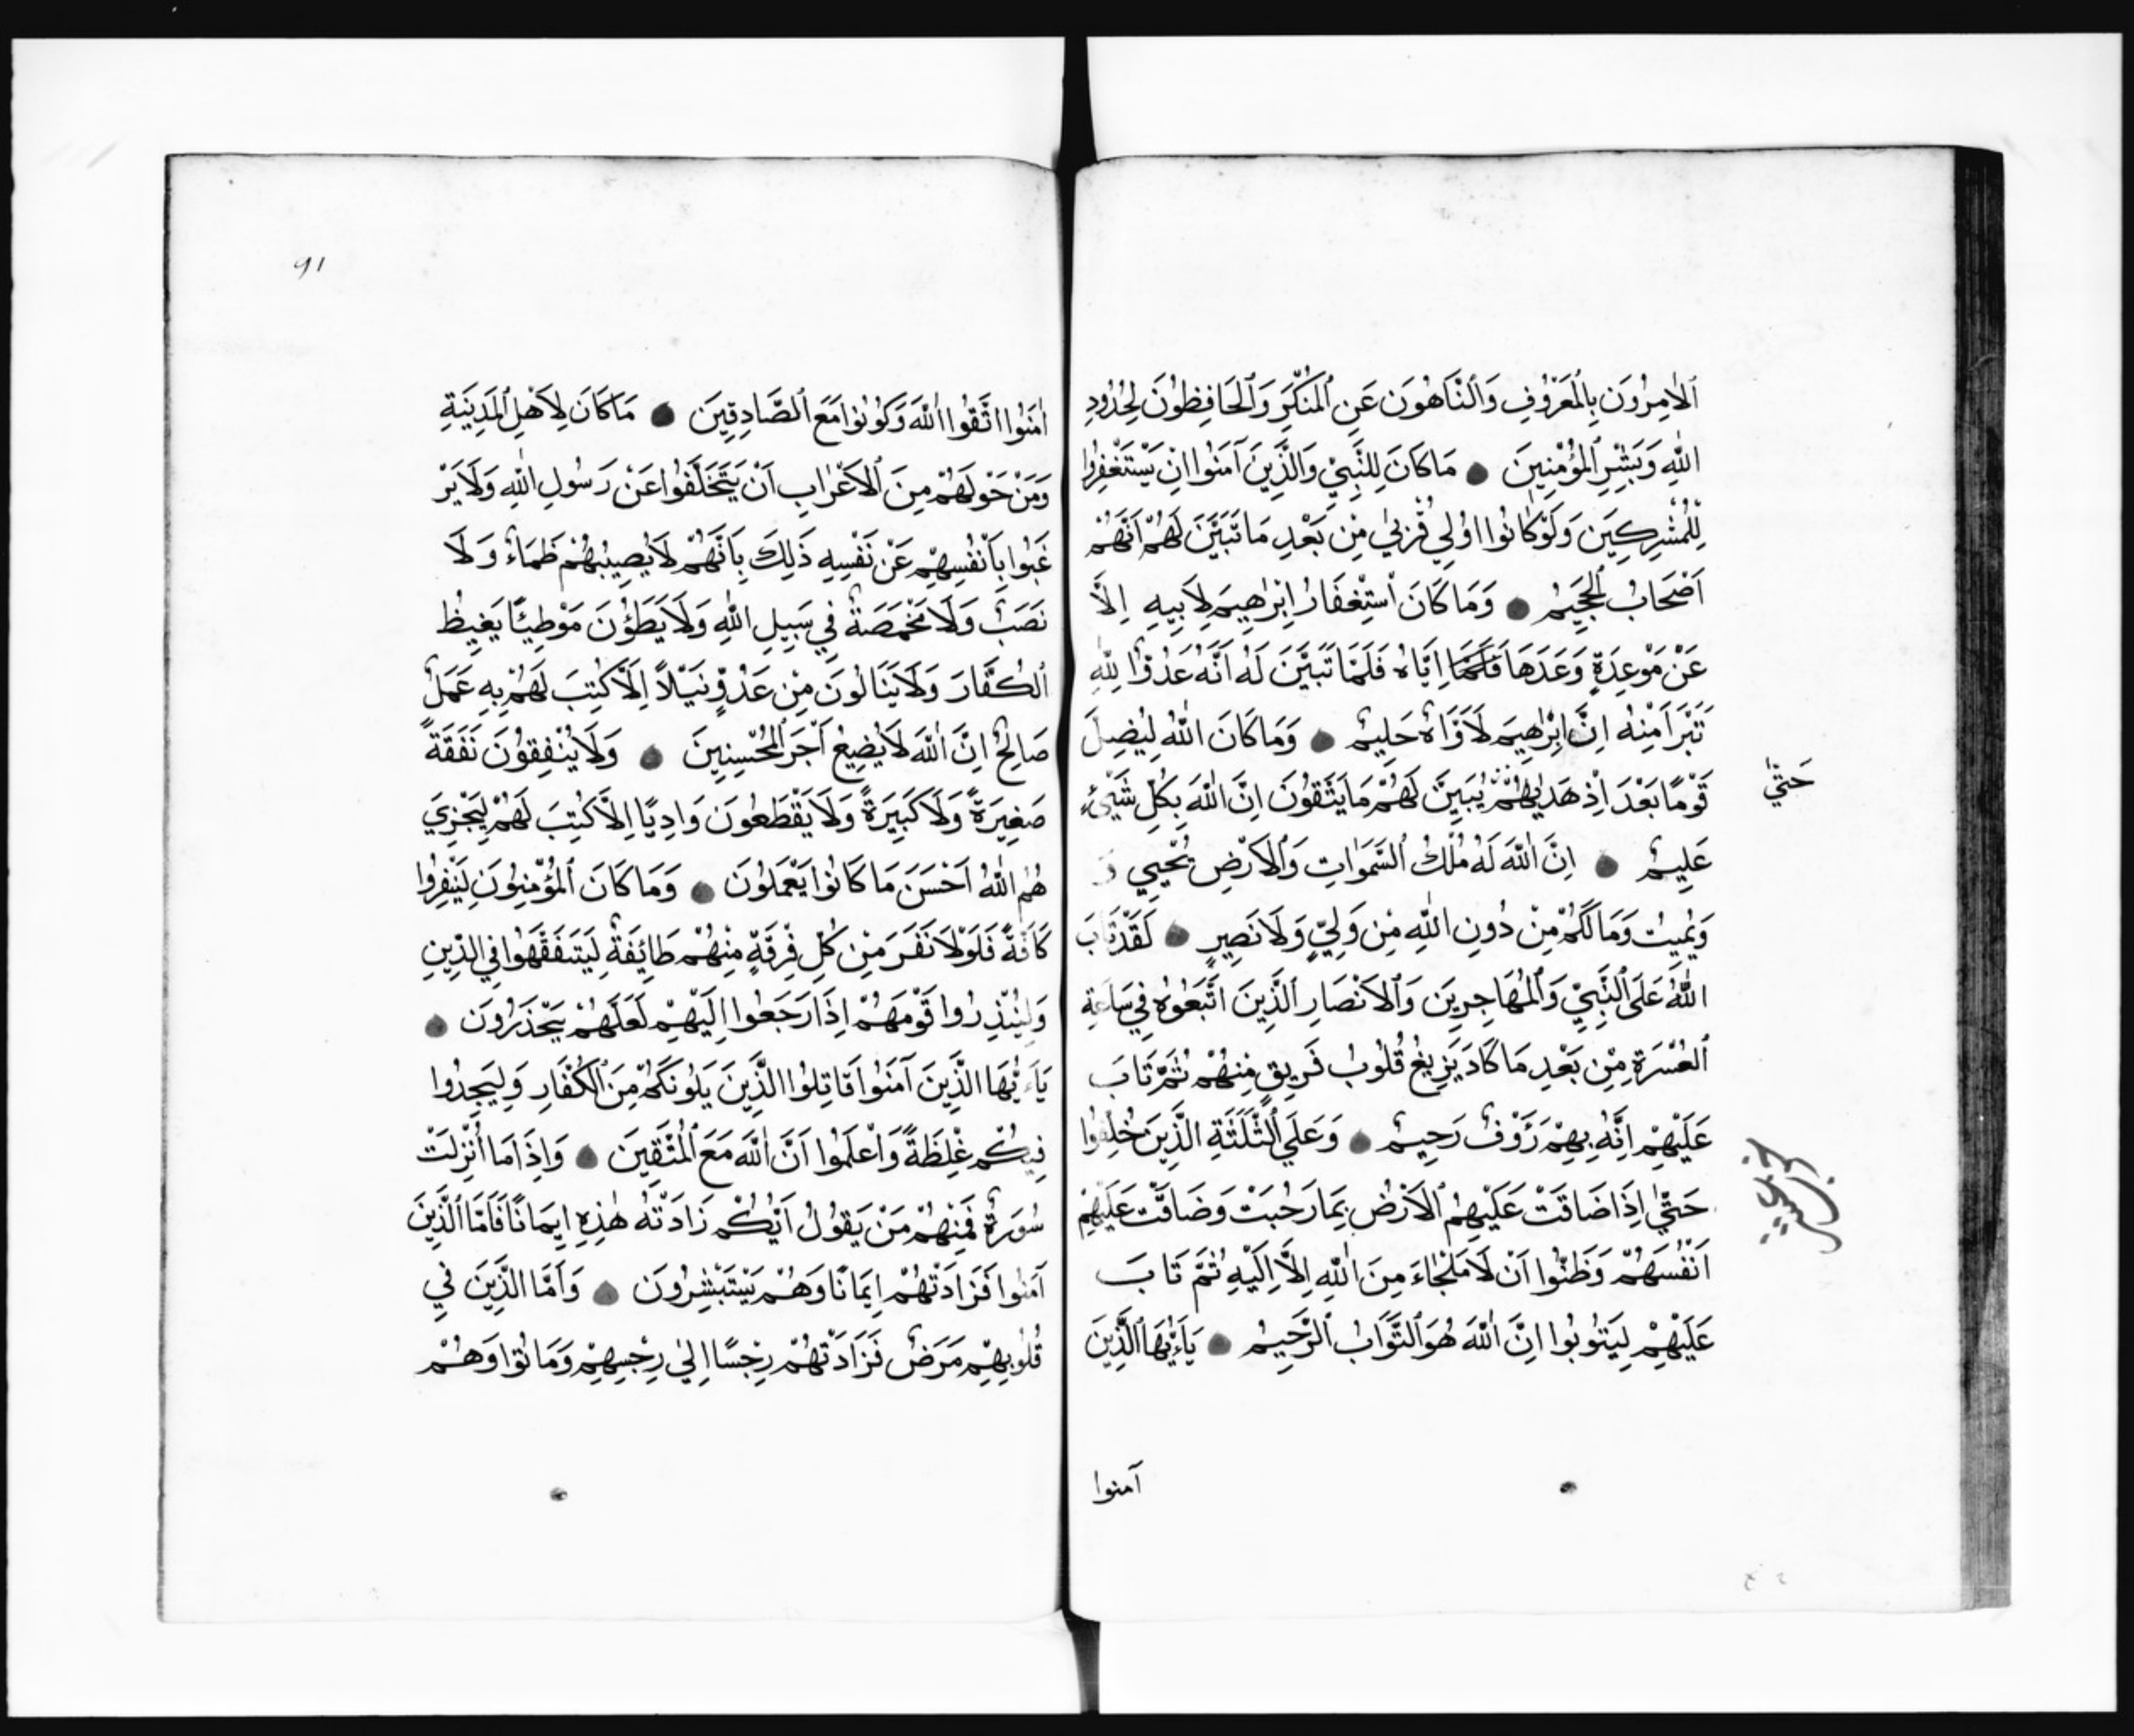 ٱلْاٰمِرُونَ بِالْمَعْرُوفِ وَٱلنَّاهُونَ عَنِ ٱلْمُنْكَرِ وَٱلْحَافِظُونَ لِحُدُودِ
اللّٰهِ وَبَشِّرِ ٱلْمُؤْمِنِينَ ● مَا كَانَ لِلنَّبِيِّ وَالَّذِينَ آمَنُوا اَنْ يَسْتَغْفِرُوا
لِلْمُشْرِكِينَ وَلَوْ كَانُوا اُولِي قُرْبٰي مِنْ بَعْدِ مَا تَبَيَّنَ لَهُمْ اَنَّهُمْ
اَصْحَابُ ٱلْجَحِيمِ ● وَمَا كَانَ ٱسْتِغْفَارُ اِبْرٰهِيمَ لِاَبِيهِ اِلَّا
عَنْ مَوْعِدَةٍ وَعَدَهَا اِيَّاهُ فَلَمَّا تَبَيَّنَ لَهُ اَنَّهُ عَدُوٌّ لِلّٰهِ
تَبَرَّاَ مِنْهُ اِنَّ اِبْرٰهِيمَ لَاَوَّاهٌ حَلِيمٌ ● وَمَا كَانَ اللّٰهُ لِيُضِلَّ
قَوْمًا بَعْدَ اِذْ هَدٰيهُمْ يُبَيِّنَ لَهُمْ مَا يَتَّقُونَ اِنَّ اللّٰهَ بِكُلِّ شَيْءٍ
حَتّٰي
عَلِيمٌ ● اِنَّ اللّٰهَ لَهُ مُلْكُ ٱلسَّمَوَاتِ وَٱلْاَرْضِ يُحْيِي وَ
وَيُمِيتُ وَمَا لَكُمْ مِنْ دُونِ اللّٰهِ مِنْ وَلِيٍّ وَلَا نَصِيرٍ ● لَقَدْ تَابَ
اللّٰهُ عَلَى ٱلنَّبِيِّ وَٱلْمُهَاجِرِينَ وَٱلْاَنْصَارِ ٱلَّذِينَ اتَّبَعُوهُ فِي سَاعَةِ
ٱلْعُسْرَةِ مِنْ بَعْدِ مَا كَادَ يَزِيغُ قُلُوبُ فَرِيقٍ مِنْهُمْ ثُمَّ تَابَ
عَلَيْهِمْ اِنَّهُ بِهِمْ رَؤُوفٌ رَحِيمٌ ● وَعَلَي ٱلثَّلٰثَةِ الَّذِينَ خُلِّفُوا
حَتّٰي اِذَا ضَاقَتْ عَلَيْهِمُ ٱلْاَرْضُ بِمَا رَحُبَتْ وَضَاقَتْ عَلَيْهِمْ
اَنْفُسُهُمْ وَظَنُّوا اَنْ لَا مَلْجَاءَ مِنَ اللّٰهِ اِلَّا اِلَيْهِ ثُمَّ تَابَ
عَلَيْهِمْ لِيَتُوبُوا اِنَّ اللّٰهَ هُوَ ٱلتَّوَّابُ ٱلرَّحِيمُ ● يَآءَيُّهَا الَّذِينَ
آمنوا
٩١
اٰمَنُوا اتَّقُوا اللّٰهَ وَكُونُوا مَعَ ٱلصَّادِقِينَ ● مَا كَانَ لِاَهْلِ ٱلْمَدِينَةِ
وَمَنْ حَوْلَهُمْ مِنَ ٱلْاَعْرَابِ اَنْ يَتَخَلَّفُوا عَنْ رَسُولِ اللّٰهِ وَلَا يَرْ
غَبُوا بِاَنْفُسِهِمْ عَنْ نَفْسِهِ ذَلِكَ بِاَنَّهُمْ لَا يُصِيبُهُمْ ظَمَاءٌ وَلَا
نَصَبٌ وَلَا مَخْمَصَةٌ فِي سَبِيلِ اللّٰهِ وَلَا يَطَؤُنَ مَوْطِئًا يَغِيظُ
ٱلْكُفَّارَ وَلَا يَنَالُونَ مِنْ عَدُوٍّ نَيْلًا اِلَّا كُتِبَ لَهُمْ بِهِ عَمَلٌ
صَالِحٌ اِنَّ اللّٰهَ لَا يُضِيعُ اَجْرَ ٱلْمُحْسِنِينَ ● وَلَا يُنْفِقُونَ نَفَقَةً
صَغِيرَةً وَلَا كَبِيرَةً وَلَا يَقْطَعُونَ وَادِيًا اِلَّا كُتِبَ لَهُمْ لِيَجْزِيَ
هُمُ اللّٰهُ اَحْسَنَ مَا كَانُوا يَعْمَلُونَ ● وَمَا كَانَ ٱلْمُؤْمِنُونَ لِيَنْفِرُوا
كَافَّةً فَلَوْلَا نَفَرَ مِنْ كُلِّ فِرْقَةٍ مِنْهُمْ طَائِفَةٌ لِيَتَفَقَّهُوا فِي الدِّينِ
وَلِيُنْذِرُوا قَوْمَهُمْ اِذَا رَجَعُوا اِلَيْهِمْ لَعَلَّهُمْ يَحْذَرُونَ ●
يَآءَيُّهَا الَّذِينَ آمَنُوا قَاتِلُوا الَّذِينَ يَلُونَكُمْ مِنَ ٱلْكُفَّارِ وَلِيَجِدُوا
فِيكُمْ غِلْظَةً وَاعْلَمُوا اَنَّ اللّٰهَ مَعَ ٱلْمُتَّقِينَ ● وَاِذَا مَا أُنْزِلَتْ
سُورَةٌ فَمِنْهُمْ مَنْ يَقُولُ اَيُّكُمْ زَادَتْهُ هٰذِهِ اِيمَانًا فَاَمَّا ٱلَّذِينَ
آمَنُوا فَزَادَتْهُمْ اِيمَانًا وَهُمْ يَسْتَبْشِرُونَ ● وَاَمَّا الَّذِينَ فِي
قُلُوبِهِمْ مَرَضٌ فَزَادَتْهُمْ رِجْسًا اِلٰي رِجْسِهِمْ وَمَاتُوا وَهُمْ